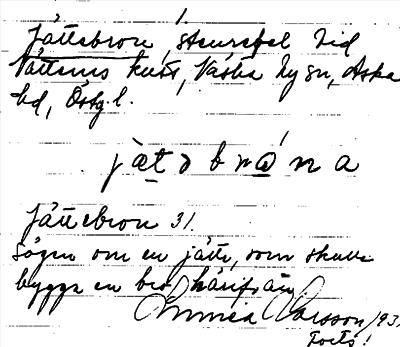 1.
Jättebron, stenrefvel vid
Vätterns kust, Västra Ny sn, Aska
hd, Östg.l.
jæt̲ɔbrɷ̲́na
Jättebron 31.
Sägen om en jätte, som skulle
bygga en bro härifrån.
Linnea Larsson 193
Forts!